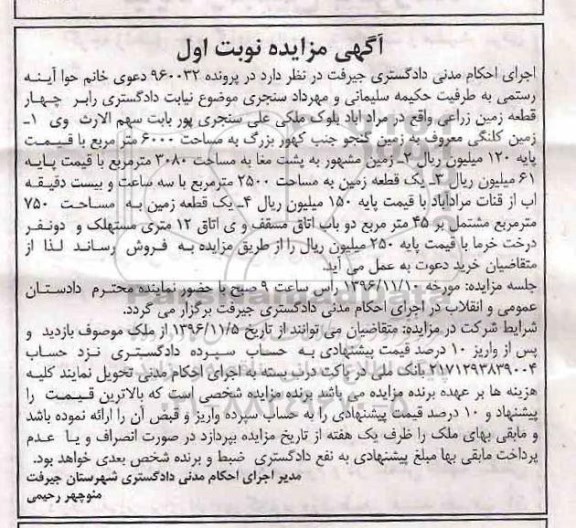 آگهی مزایده نوبت اول
اجرای احکام مدنی دادگستری جیرفت در نظر دارد در پرونده ۹۶۰۰۳۲ دعوی خانم حوا آینه
رستمی به طرفیت حکیمه سلیمانی و مهرداد سنجری موضوع نیابت دادگستری رابر چهار
قطعه زمین زراعی واقع در مراد اباد بلوک ملکی علی سنجری پور بابت سهم الارث وی ۱ـ
زمین کلنگی معروف به زمین گنجو جنب کهور بزرگ به مساحت ۶۰۰۰ متر مربع با قیمت
پایه ۱۲۰ میلیون ریال ۲ـ زمین مشهور به پشت مغا به مساحت ۳۰۸۰ مترمربع با قیمت پایه
۶۱ میلیون ریال ۳ـ یک قطعه زمین به مساحت ۲۵۰۰ مترمربع با سه ساعت و بیست دقیقه
اب از قنات مراداباد با قیمت پایه ۱۵۰ میلیون ریال ۴ـ یک قطعه زمین به مساحت ۷۵۰
مترمربع مشتمل بر ۴۵ متر مربع دو باب اتاق مسقف و ی اتاق ۱۲ متری مستهلک و دونفر
درخت خرما با قیمت پایه ۲۵۰ میلیون ریال را از طریق مزایده به فروش رساند لذا از
متقاضیان خرید دعوت به عمل می آید.
جلسه مزایده: مورخه ۱۳۹۶/۱۱/۱۰ راس ساعت ۹ صبح با حضور نماینده محترم دادستان
عمومی و انقلاب در اجرای احکام مدنی دادگستری جیرفت برگزار می گردد.
شرایط شرکت در مزایده: متقاضیان می توانند از تاریخ ۱۳۹۶/۱۱/۵ از ملک موصوف بازدید و
پس از واریز ۱۰ درصد قیمت پیشنهادی به حساب سپرده دادگستری نزد حساب
۲۱۷۱۲۹۳۸۳۹۰۰۴ بانک ملی در پاکت درب بسته به اجرای احکام مدنی تحویل نمایند کلیه
هزینه ها بر عهده برنده مزایده می باشد برنده مزایده شخصی است که بالاترین قیمت را
پیشنهاد و ۱۰ درصد قیمت پیشنهادی را به حساب سپرده واریز و قبض آن را ارائه نموده باشد
و مابقی بهای ملک را ظرف یک هفته از تاریخ مزایده بپردازد در صورت انصراف و یا عدم
پرداخت مابقی بها مبلغ پیشنهادی به نفع دادگستری ضبط و برنده شخص بعدی خواهد بود.
مدیر اجرای احکام مدنی دادگستری شهرستان جیرفت
منوچهر رحیمی